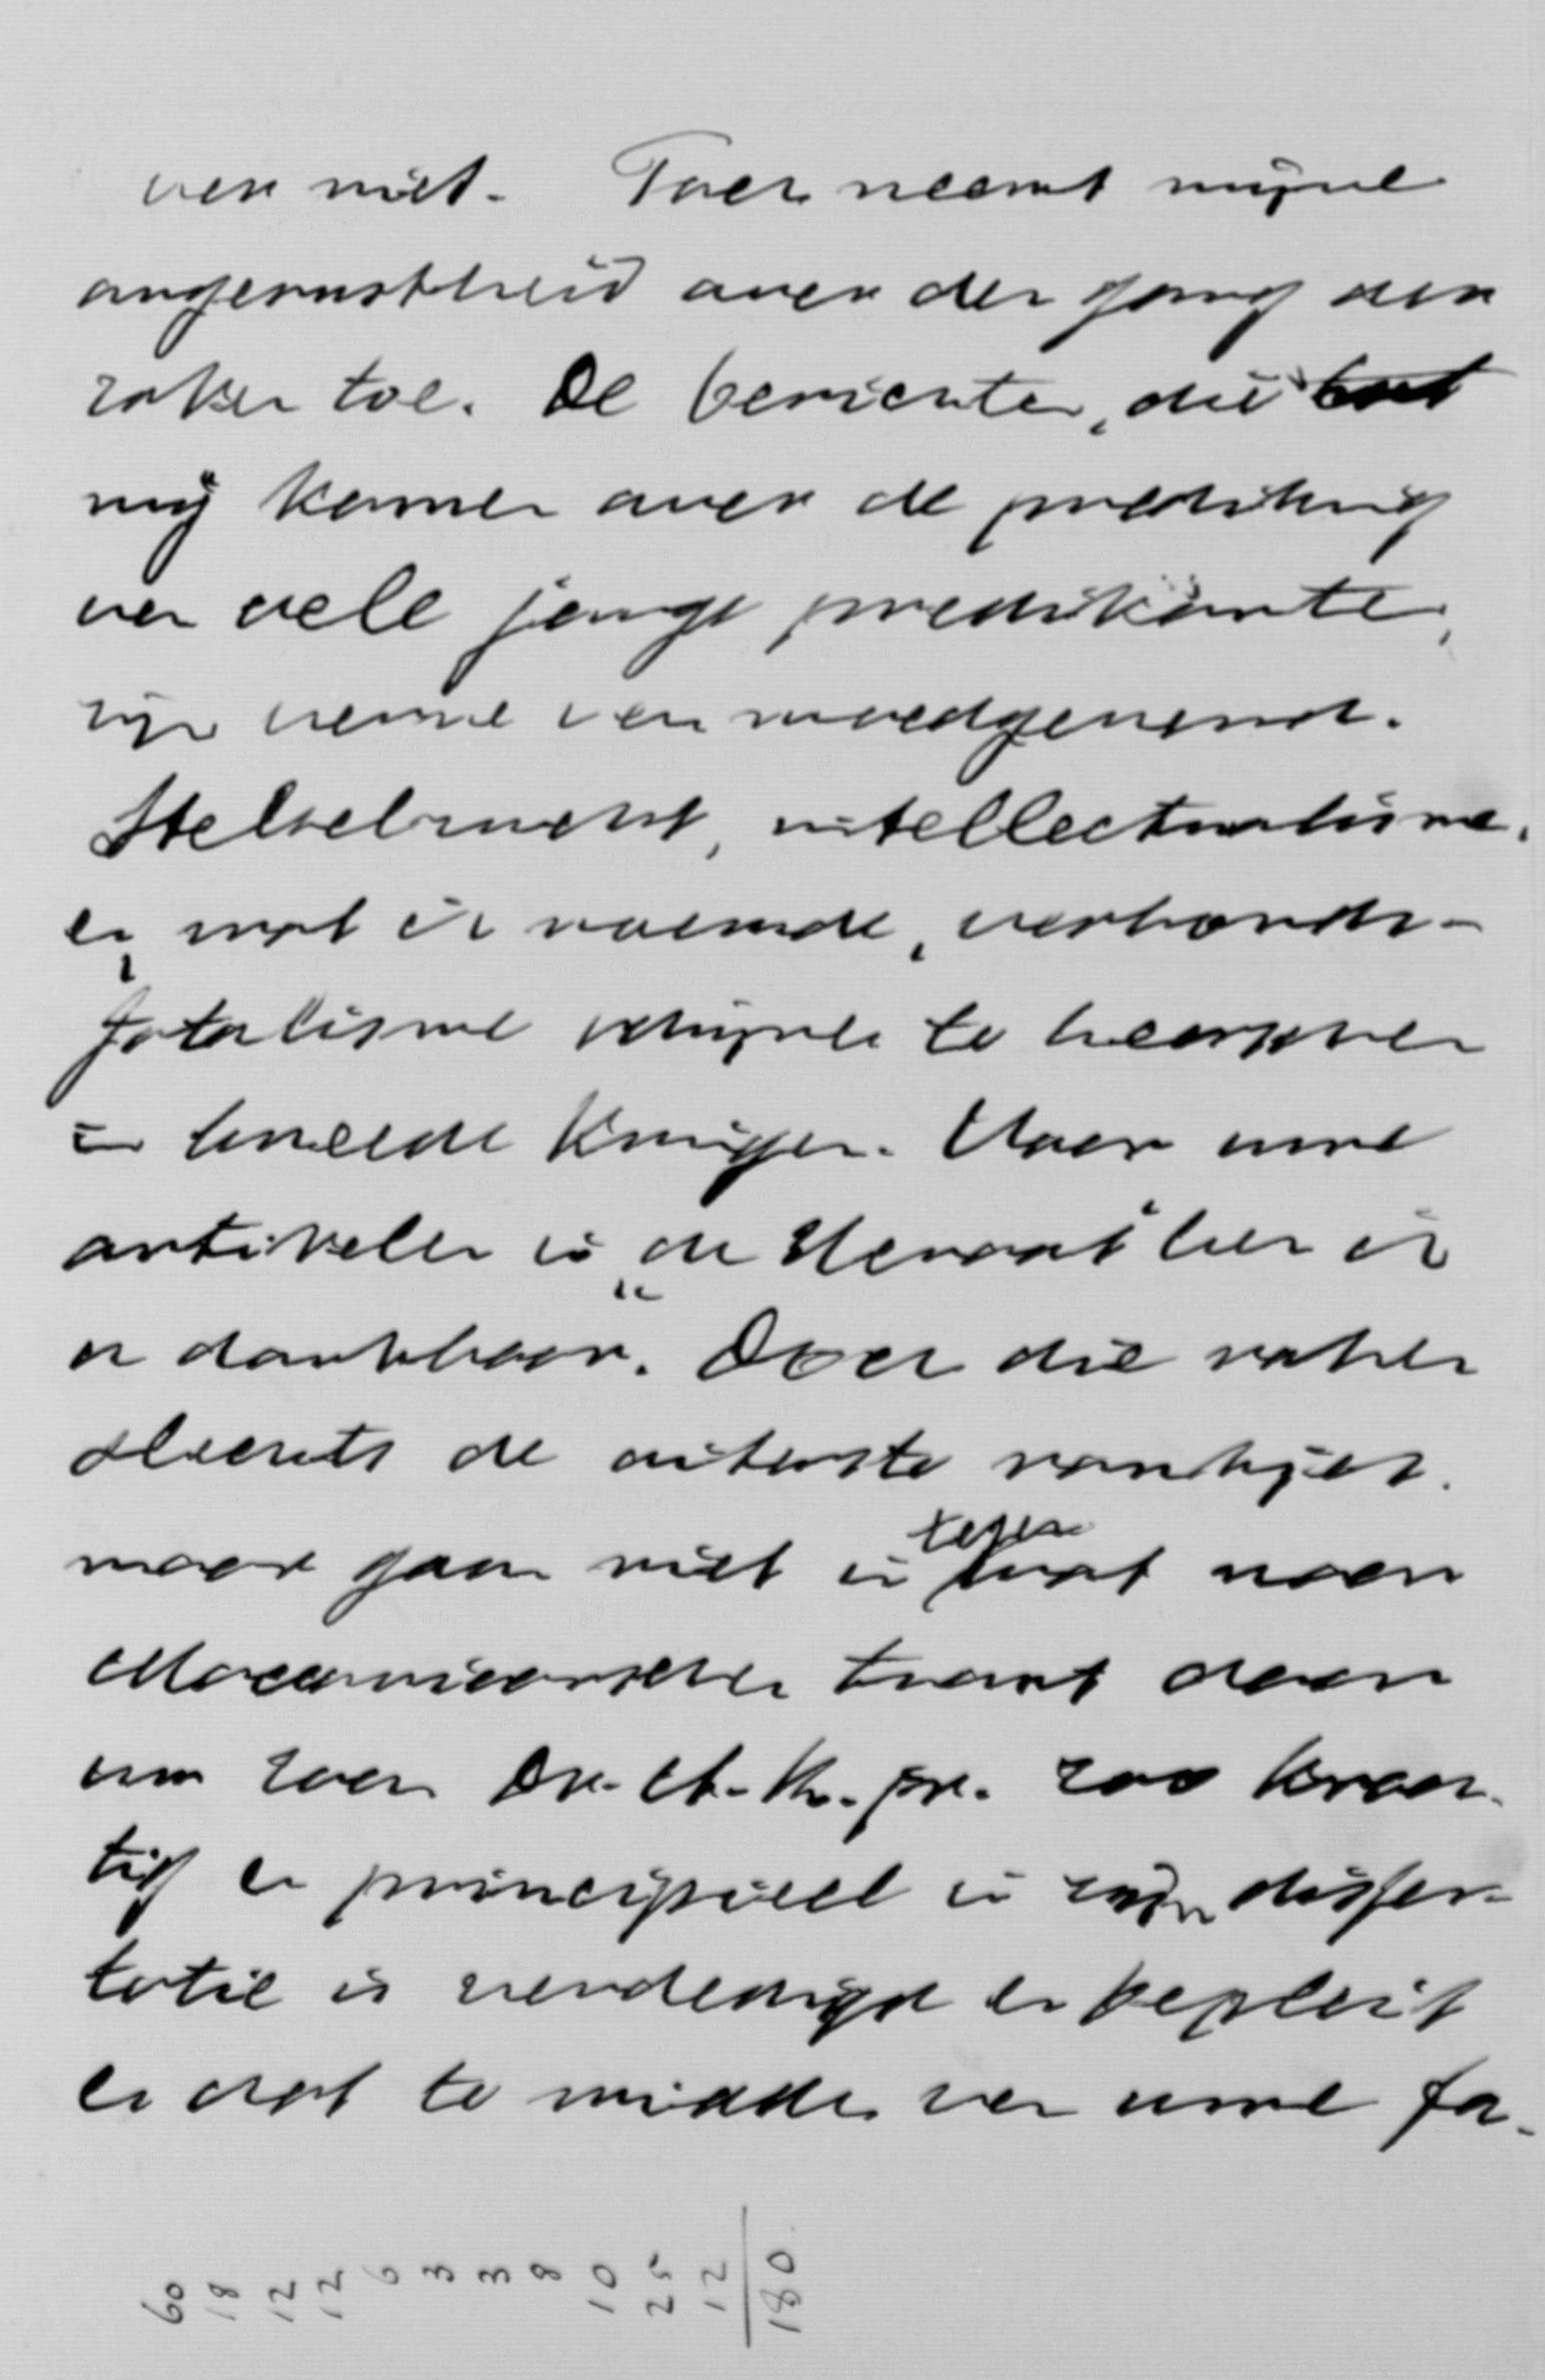 ven niet. Toch neemt mijne
ongerustheid over den gang der
zaken toe. De berichten, die tot
mij komen over de prediking
van vele jonge predikanten,
zijn verre van moedgevend.
Stelselzucht, intellectualisme,
en wat ik noemde, verbonds-
fatalisme schijnen te heerschen
in breede kringen. Voor uwe
artikelen in „de Heraut" ben ik
u dankbaar. Doch die raken
slechts de uiterste randjes.
maar gaan niet in tegen wat naar
Maccoviaanschen trant door
uw zoon Dr. A. K. jr. zoo krach-
tig en principieel in zijn disser-
tatie is verdedigd en bepleit
en dat te midden van uwe fa-
60
18
12
12
6
3
3
8
10
25
12
180